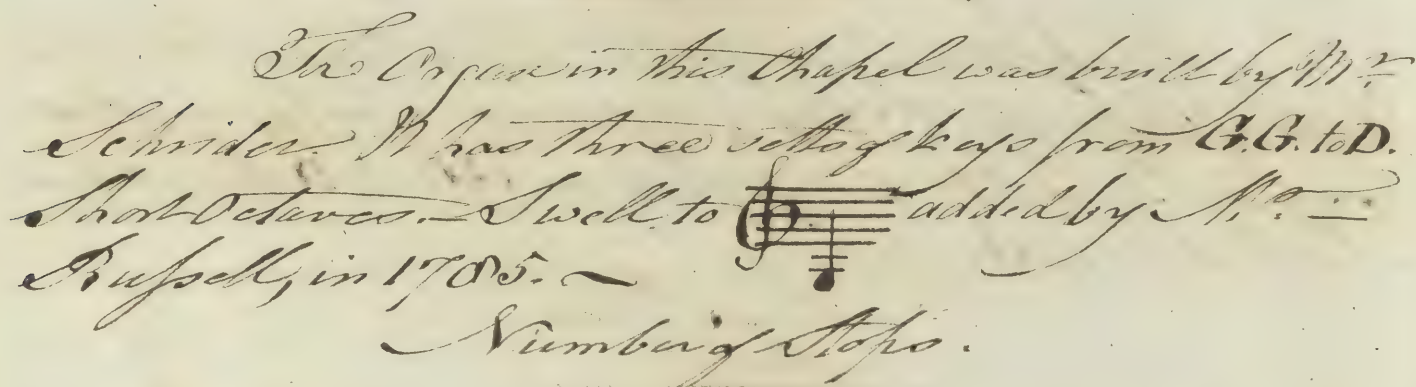 The Organ in this Chapel was built by Mr
Schrider. It has three setts of keys from G.G. to D.
Short Octaves. — Swell to added by Mr. —
Russell, in 1785. —
Number of Stops.